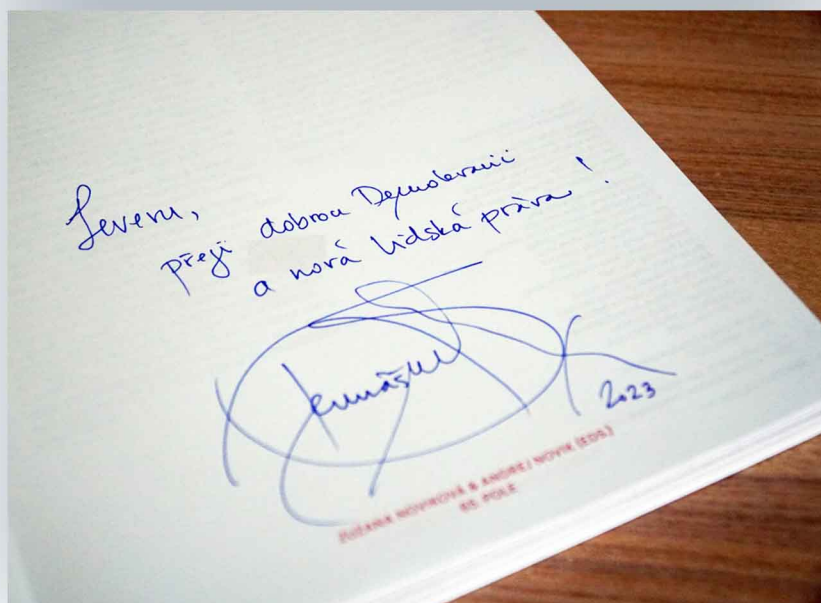 Severu,
přeji dobrou Demokracii
a nová lidská práva!
2023
ZUZANA NOVIKOVÁ & ANDREJ NOVIK (EDS.)
RE: POLE